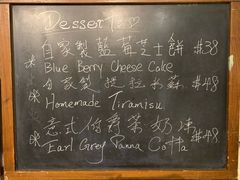 Desserts♡
自家製藍莓芝士餅 #38
Blue Berry Cheese Cake
自家製提拉米蘇 #48
Homemade Tiramisu
意式伯爵茶奶凍 #48
Earl Grey Panna Cotta